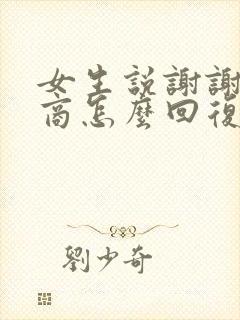 女生説謝謝
商怎麼回復
劉少奇